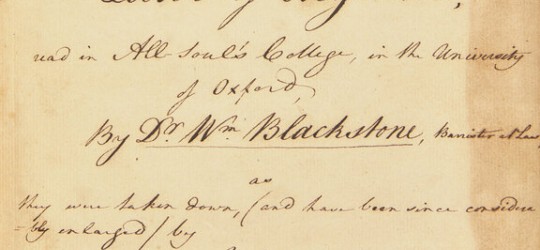 read in All Soul's College, in the University
of Oxford,
By Dr. Wm. Blackstone, Barrister at Law,
as
they were taken down, (and have been since conside
=bly enlarged) by